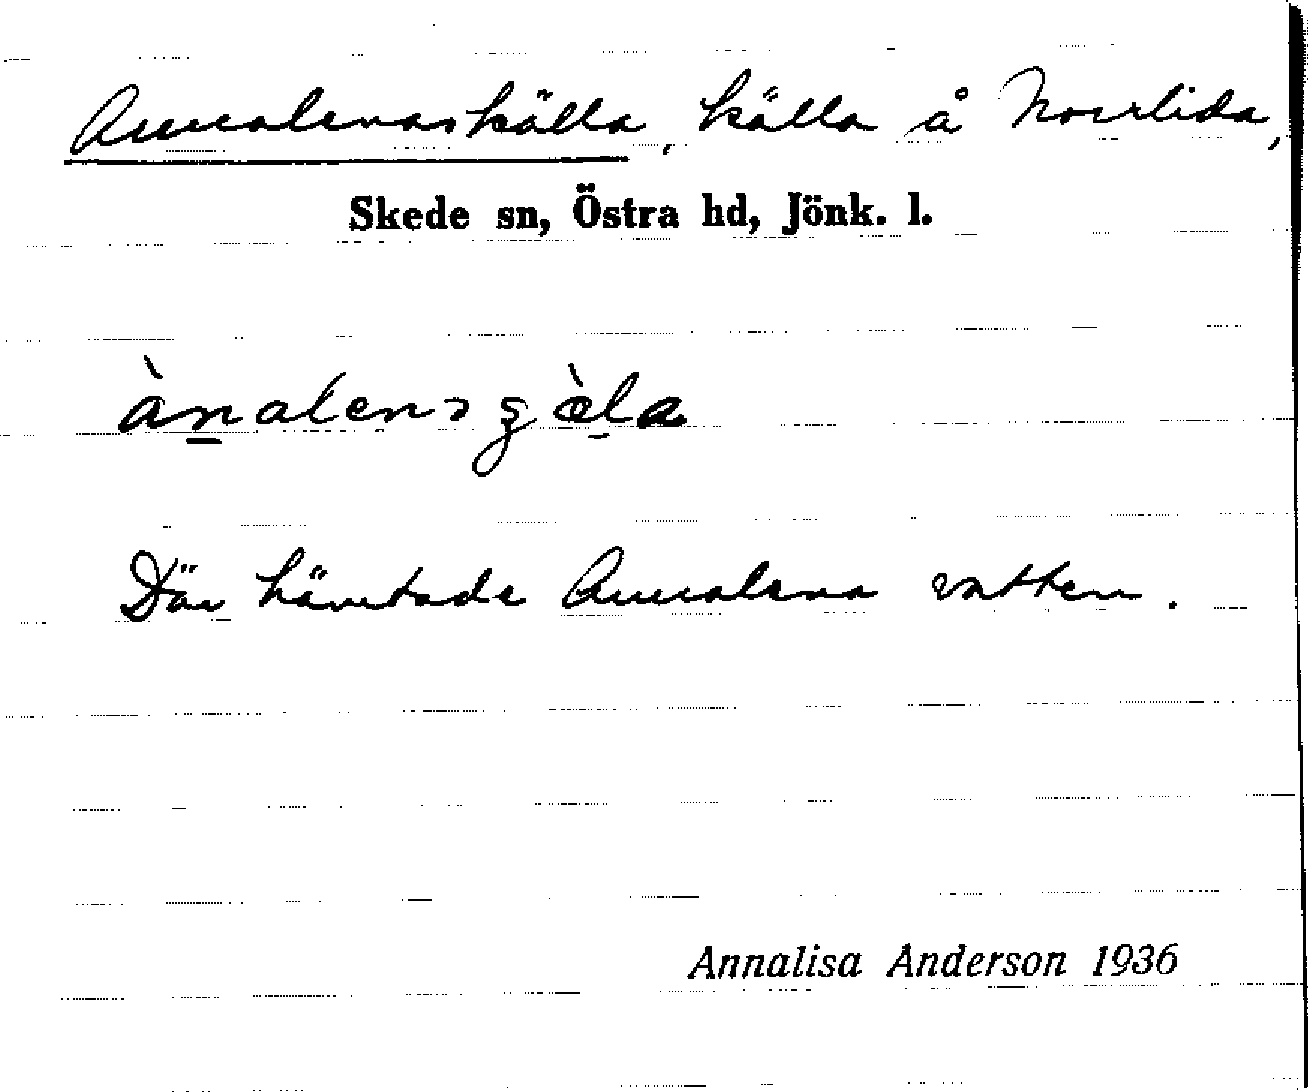 Annalenaskälla, källa å Norrlida,
Skede sn, Östra hd, Jönk. l.
Där hämtade Annalena vatten.
Annalisa Anderson 1936